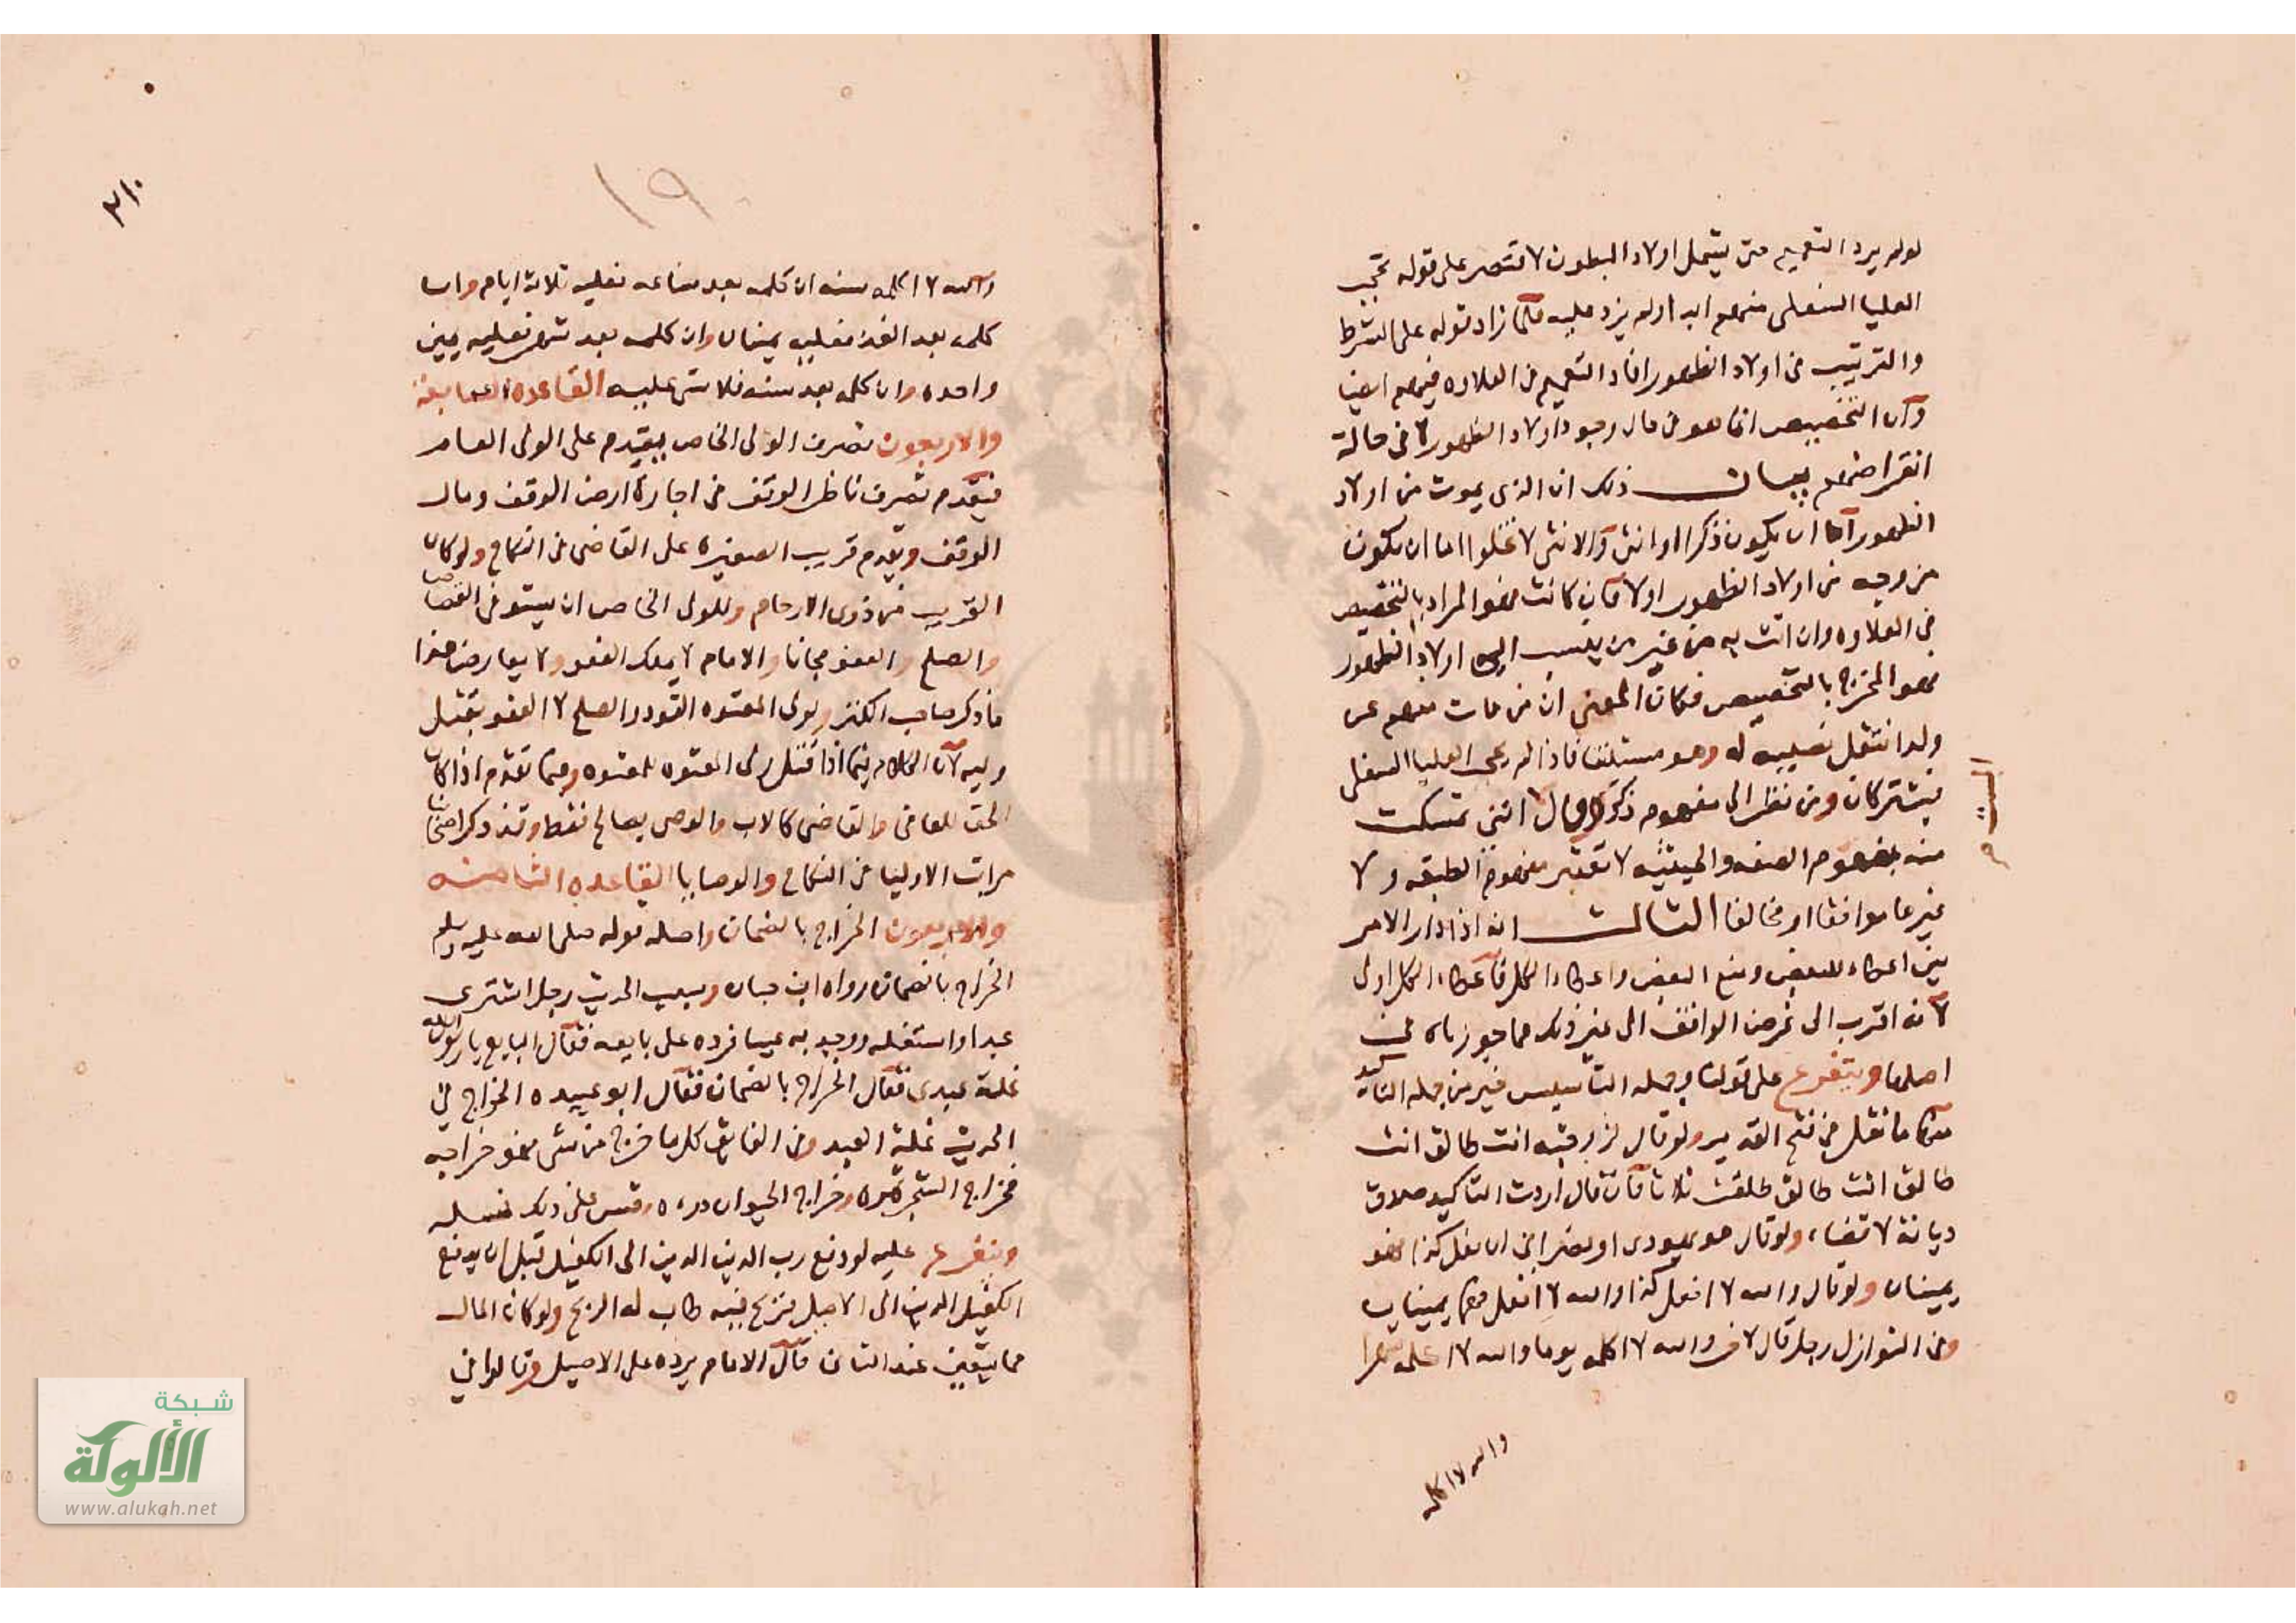 لو لم يرد التعميم حتى يشمل اولاد البطون لاقتصر على قوله تحجب
العليا السفلى منهم ابدا ولم يزد عليه فلما زاد قوله على الشرط
والترتيب في اولاد الظهور افاد التعميم في العلاوه فيهم ايضا
وان التخصيص انما هو في حال وجود اولاد الظهور لا في حالة
انقراضهم بيان ذلك ان الذي يموت من اولاد
الظهور اما ان يكون ذكرا او انثى والانثى لا تخلوا اما ان تكون
مزوجه من اولاد الظهور او لا فان كانت فهو المراد بالتخصيص
في العلاوه وان اتت به من غير من ينسب الى اولاد الظهور
فهو المخرج بالتخصيص فكان المعنى ان من مات منهم عن
ولد انتقل نصيبه له وهو مستلفا فاذا لم تحجب العليا السفلى
فيشتركان ومن نظر الى مفهوم ذكور وقال انني تمسكت
منه بمفهوم الصفه والحيثيه لا تعتبر مفهوم الطبقه ولا
غيرها موافقا او مخالفا الثالث انه اذا دار الامر
بين اعطاء للبعض ومنع البعض واعطاء الكل فاعطاء الكل اولى
لانه اقرب الى غرض الواقف الى غير ذلك مما جوزناه في
اصلها ويتفرع على قولنا وحمله التاسيس خير من حمله التاكيد
منها ما نقل في فتح القدير ولو قال لزوجته انت طالق انت
طالق انت طالق طلقت ثلاثا فان قال اردت التاكيد صدق
ديانة لا قضاء ولو قال هو يهودي او نصراني ان فعل كذا فهو
يمينان ولو قال والله لا افعل كذا والله لا افعل فهما يمينان
وفي النوازل رجل قال لاخر والله لا اكلمه يوما والله لا اكلمه شهرا
والله لا اكلمه
١٩
والله لا اكلمه سنه ان كلمه بعد ساعه فعليه ثلاث ايمان وان
كلمه بعد الغد فعليه يمينان وان كلمه بعد شهر فعليه يمين
واحده وان كلمه بعد سنه فلا شي عليه القاعده السابعة
والاربعون تصرف الولي الخاص يتقدم على الولي العام
فيقدم تصرف ناظر الوقف في اجارة ارض الوقف ومال
الوقف ويقدم قريب الصغيره على القاضي في النكاح ولو كان
القريب من ذوي الارحام وللولي الخاص ان يستوفي القصاص
والصلح والعفو مجانا والامام لا يملك العفو ولا يعارض هذا
ما ذكر صاحب الكنز ولولي المعتوه القود والصلح لا العفو بقتل
وليه لان الكلام فيما اذا قتل ولى المعتوه المعتوه وفيما تقدم اذا كان
الحق للعافي والقاضي كالاب والوصي يصالح فقط وقد ذكر اصحابنا
مراتب الاوليا في النكاح والوصايا القاعده الثامنه
والاربعون الخراج بالضمان واصله قوله صلى الله عليه وسلم
الخراج بالضمان رواه ابن حبان وسبب الحديث رجل اشترى
عبدا واستغله ووجد به عيبا فرده على بايعه فقال البايع يا رسول الله
غلة عبدي فقال الخراج بالضمان فقال ابو عبيده الخراج في
الحديث غلة العبد وفي الفايق كل ما خرج من شي فهو خراجه
فخراج الشجرة ثمره وخراج الحيوان دره وقس على ذلك نسله
ويتفرع عليه لو دفع رب الدين الدين الى الكفيل قبل ان يدفع
الكفيل الدين الى الاصيل فربح فيه طاب له الربح ولو كان المال
مما يتعين عند الثاني قال الامام يرده على الاصيل وقالوا في
شبكة
الألوكة
www.alukah.net